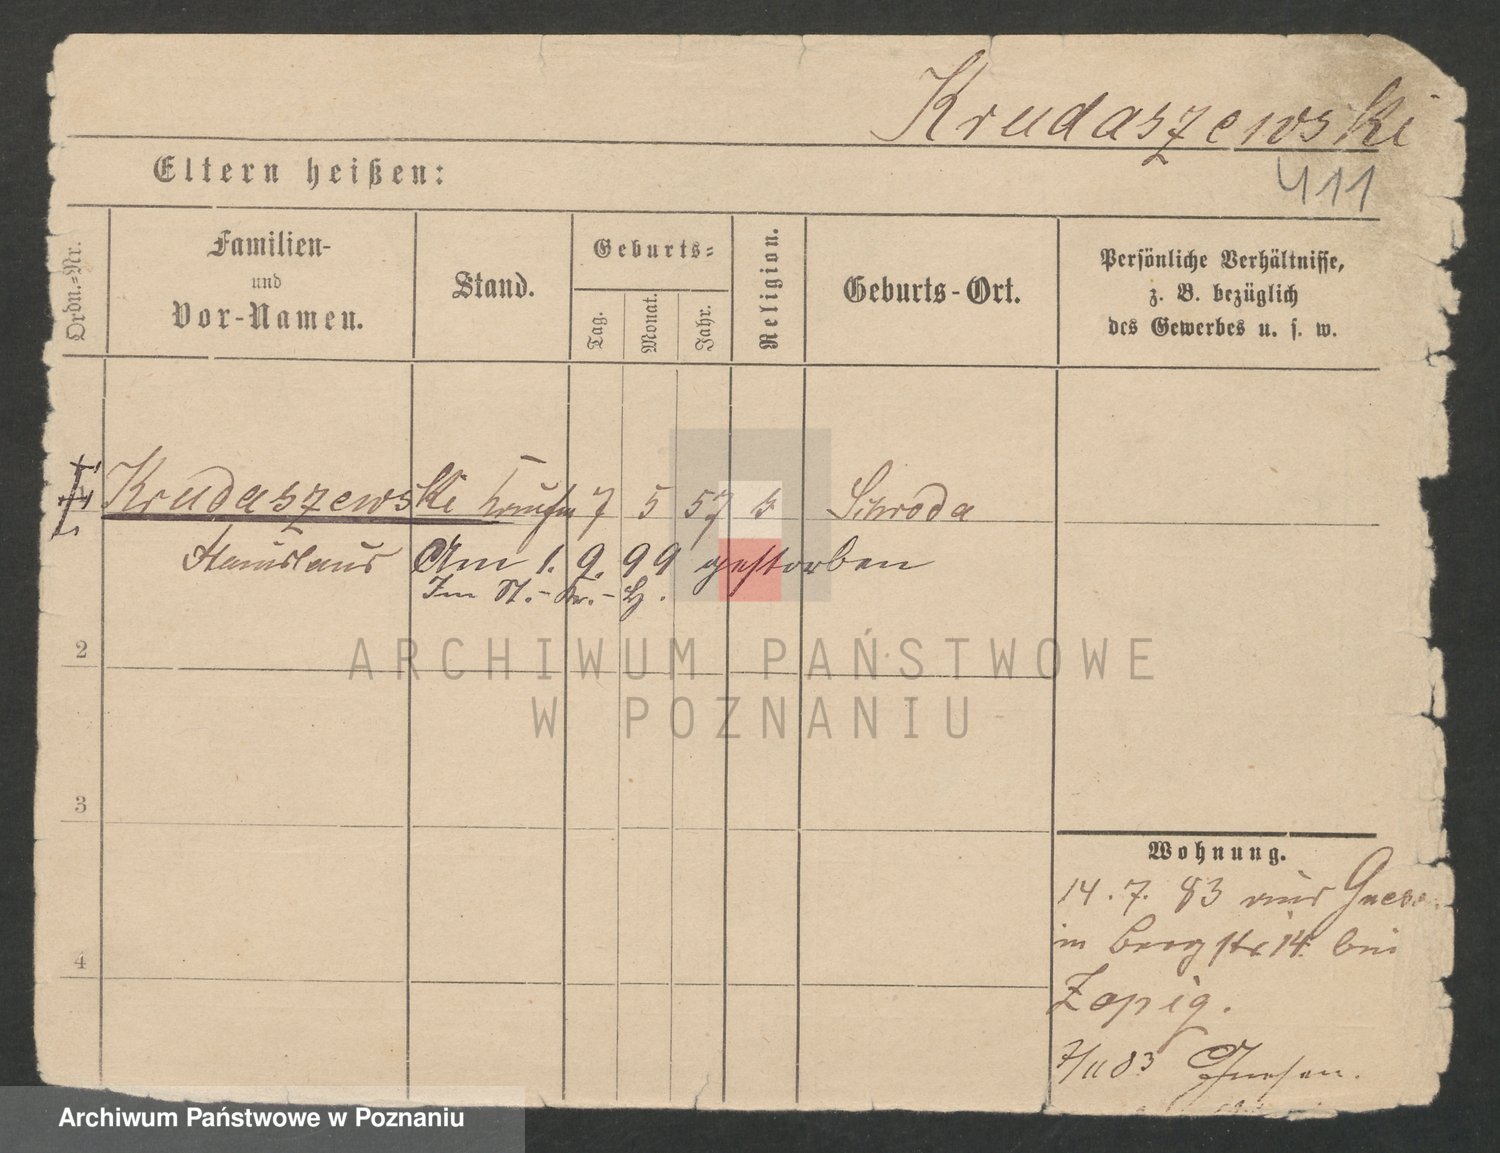 Krudaszewski
411
Eltern heißen:
Ordn.-Nr.
Familien-
und
Vor-Namen.
Stand.
Geburts-
Tag.
Monat.
Jahr.
Religion.
Geburts-Ort.
Persönliche Verhältnisse,
z. B. bezüglich
des Gewerbes u. s. w.
Krudaszewski 7 5 57 Schroda
Stanislaus Am 1. 9. 99 gestorben
Im St.-Kr.-H.
2
3
4
Wohnung.
14. 7. 83 aus Gnesen
in Bergstr 14. bei
Zapig.
7/11 83 Gnesen.
ARCHIWUM PAŃSTWOWE
W POZNANIU
Archiwum Państwowe w Poznaniu